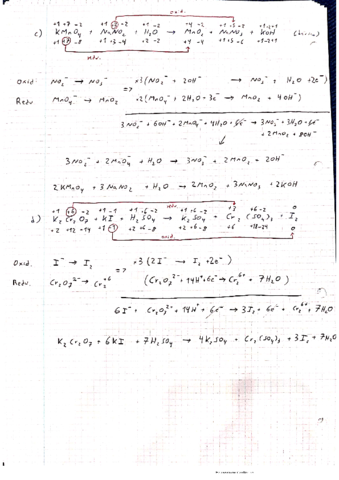 oxid.
+1 +7 -2 +1 +3 -2 +1 -2 +4 -2 +1 +5 -2 +1 -2 +1
c) KMnO₄ + NaNO₂ + H₂O → MnO₂ + NaNO₃ + KOH
+1 +7 -8 +1 +3 -4 +2 -2 +4 -4 +1 +5 -6 +1 -2 +1
redu.
Oxid: NO₂⁻ → NO₃⁻ => ×3 (NO₂⁻ + 2OH⁻ → NO₃⁻ + H₂O + 2e⁻)
Redu: MnO₄⁻ → MnO₂ ×2 (MnO₄⁻ + 2H₂O + 3e⁻ → MnO₂ + 4OH⁻)
3NO₂⁻ + 6OH⁻ + 2MnO₄⁻ + 4H₂O + 6e⁻ → 3NO₃⁻ + 3H₂O + 6e⁻
+ 2MnO₂ + 8OH⁻
3NO₂⁻ + 2MnO₄⁻ + H₂O → 3NO₃⁻ + 2MnO₂ + 2OH⁻
2KMnO₄ + 3NaNO₂ + H₂O → 2MnO₂ + 3NaNO₃ + 2KOH
redu.
+1 +6 -2 +1 -1 +1 +6 -2 +1 +6 -2 +3 +6 -2 0
b) K₂Cr₂O₇ + KI + H₂SO₄ → K₂SO₄ + Cr₂(SO₄)₃ + I₂
+2 +12 -14 +1 -1 +2 +6 -8 +2 +6 -8 +6 +18 -24 0
oxid.
Oxid. I⁻ → I₂ => ×3 (2I⁻ → I₂ + 2e⁻)
Redu. Cr₂O₇²⁻ → Cr₂⁺⁶ (Cr₂O₇²⁻ + 14H⁺ + 6e⁻ → Cr₂⁶⁺ + 7H₂O)
6I⁻ + Cr₂O₇²⁻ + 14H⁺ + 6e⁻ → 3I₂ + 6e⁻ + Cr₂⁶⁺ + 7H₂O
K₂Cr₂O₇ + 6KI + 7H₂SO₄ → 4K₂SO₄ + Cr₂(SO₄)₃ + 3I₂ + 7H₂O